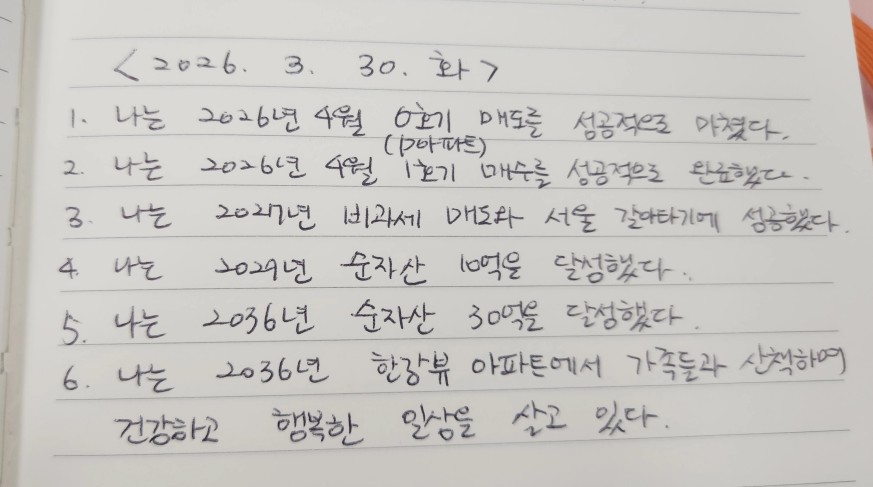 <2026. 3. 30. 화>
1. 나는 2026년 4월 0호기 매도를 성공적으로 마쳤다.
(D아파트)
2. 나는 2026년 4월 1호기 매수를 성공적으로 완료했다.
3. 나는 2027년 비과세 매도와 서울 갈아타기에 성공했다.
4. 나는 2029년 순자산 10억을 달성했다.
5. 나는 2036년 순자산 30억을 달성했다.
6. 나는 2036년 한강뷰 아파트에서 가족들과 산책하며
건강하고 행복한 일상을 살고 있다.